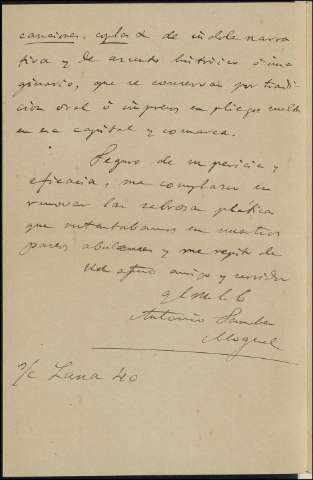 canciones, coplas de indole narra
tiva y de asunto histórico ó ima
ginario, que se conservan por tradi
cion oral ó impresos en pliegos sueltos
en esa capital y comarca.
Seguro de su pericia y
eficacia, me complazco en
renovar las sabrosa plática
que entablabamos en nuestros
paseos y me repito de
Vd afmo amigo y servidor
q b s m
Antonio Sanchez
Moguel
s/c Luna 40